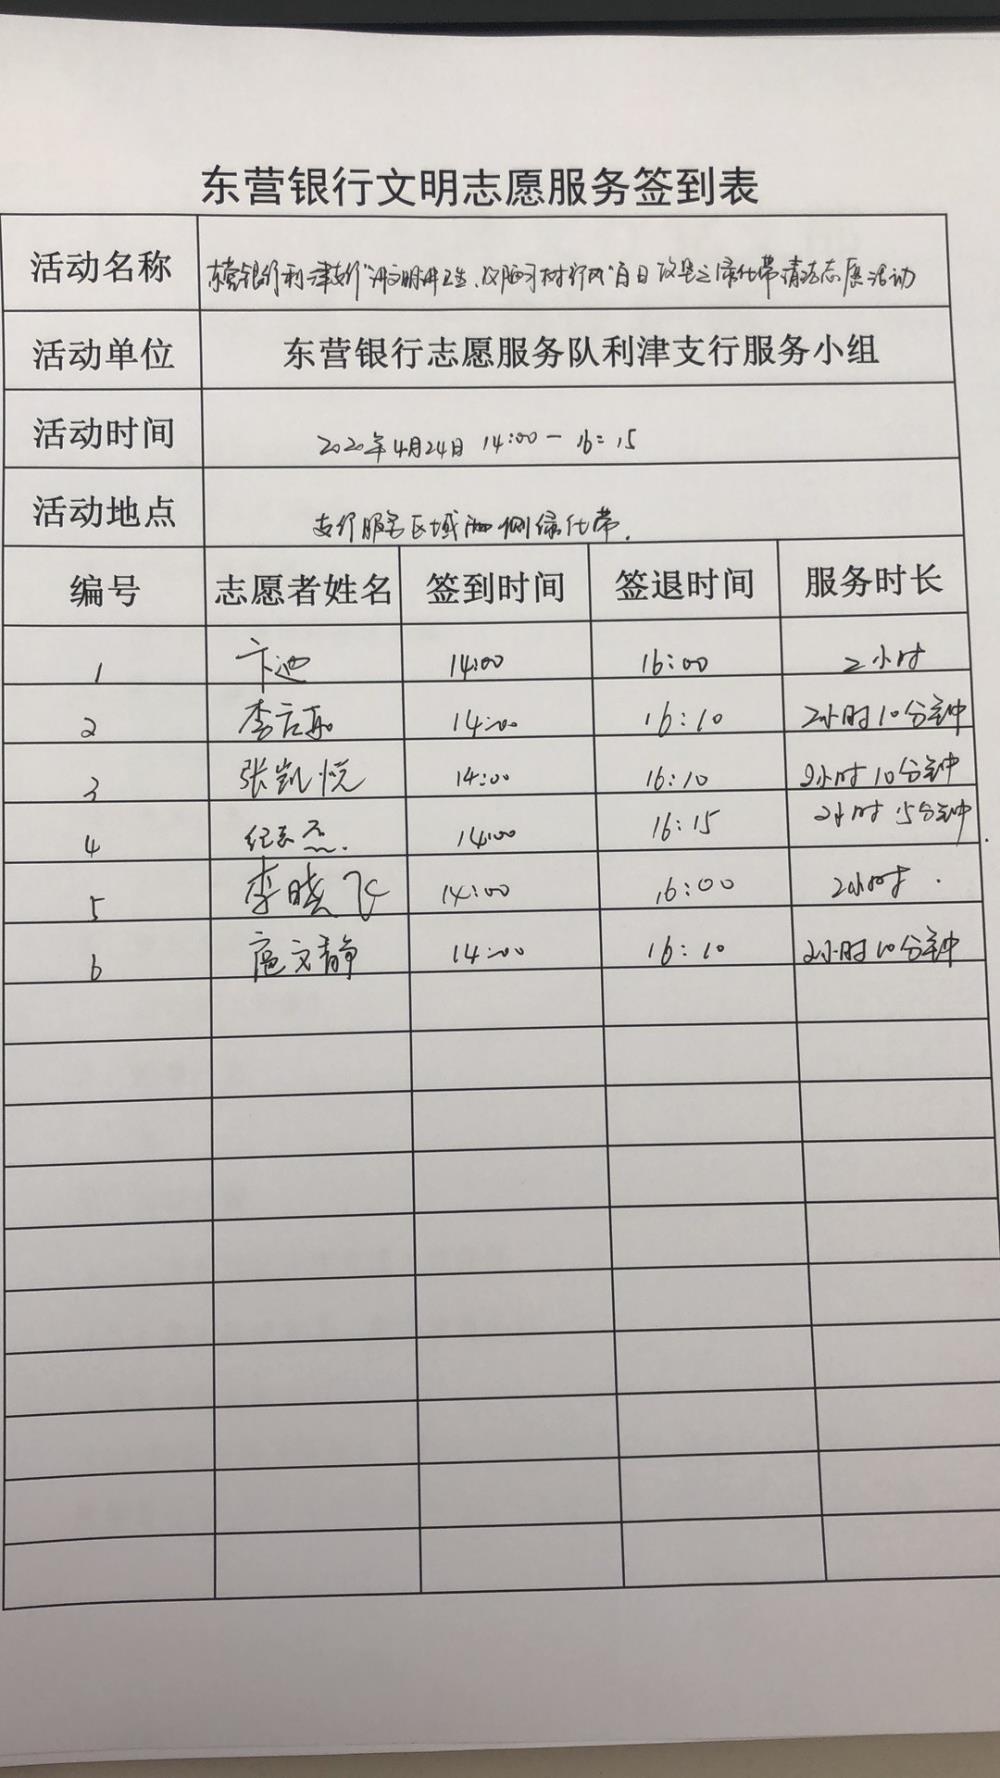 东营银行文明志愿服务签到表
活动名称 东营银行利津支行"讲文明讲卫生、改陋习树行风"百日攻坚之绿化带清洁志愿活动
活动单位 东营银行志愿服务队利津支行服务小组
活动时间 2020年4月24日 14:00一16:15
活动地点 支行服务区域两侧绿化带.
编号 志愿者姓名 签到时间 签退时间 服务时长
1 卞迪 14:00 16:00 2小时
2 李 14:00 16:10 2小时10分钟
3 张凯悦 14:00 16:10 2小时10分钟
4 纪志杰. 14:00 16:15 2小时15分钟.
5 李晓飞 14:00 16:00 2小时.
6 扈文静 14:00 16:10 2小时10分钟